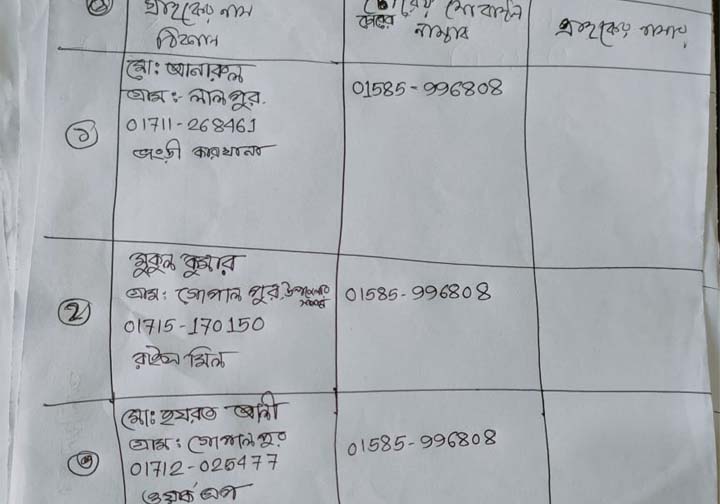 গ্রাহকের নাম
ঠিকানা
চোরের মোবাইল
নাম্বার
১
মো: আনারুল
গ্রাম:- লালপুর.
01711-268461
কারখানা
01585-996808
২
মুকুল কুমার
গ্রাম: গোপালপুর
01715-170150
রাইস মিল
01585-996808
৩
মো: হযরত আলী
গ্রাম: গোপালপুর
01712-025477
ওয়ার্কশপ
01585-996808